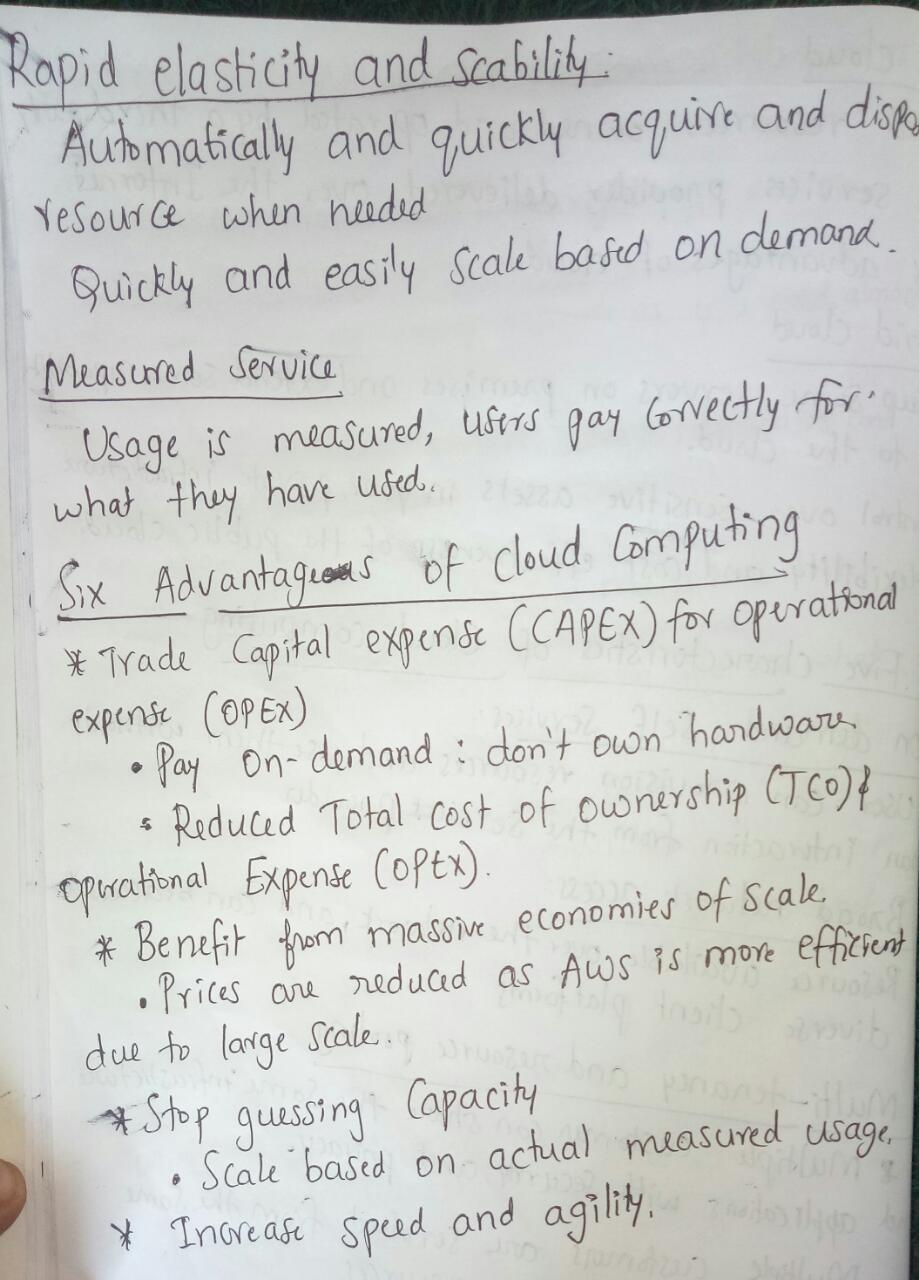 Rapid elasticity and Scability.
Automatically and quickly acquire and dispo
resource when needed
Quickly and easily Scale based on demand.
Measured Service
Usage is measured, users pay correctly for
what they have used.
Six Advantages of Cloud Computing
* Trade Capital expense (CAPEX) for operational
expense (OPEX)
• Pay On-demand : don't own hardware
• Reduced Total Cost of ownership (TCO) &
operational Expense (OPEX).
* Benefit from massive economies of scale.
• Prices are reduced as AWS is more efficient
due to large scale.
* Stop guessing Capacity
• Scale based on actual measured usage.
* Increase speed and agility.